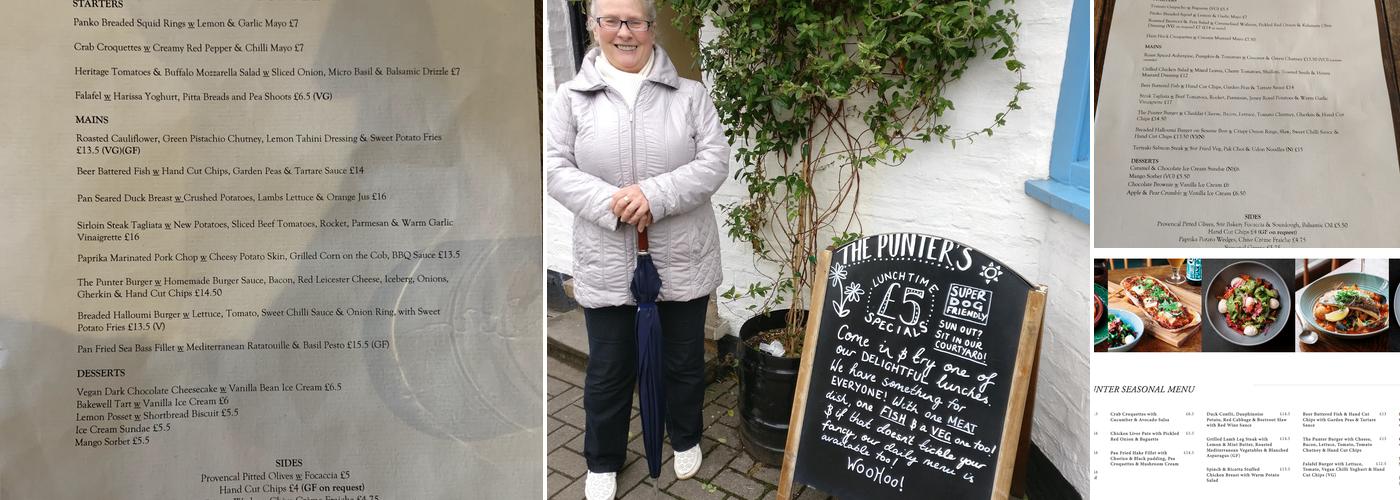 STARTERS
Panko Breaded Squid Rings w Lemon & Garlic Mayo £7
Crab Croquettes w Creamy Red Pepper & Chilli Mayo £7
Heritage Tomatoes & Buffalo Mozzarella Salad w Sliced Onion, Micro Basil & Balsamic Drizzle £7
Falafel w Harissa Yoghurt, Pitta Breads and Pea Shoots £6.5 (VG)
MAINS
Roasted Cauliflower, Green Pistachio Chutney, Lemon Tahini Dressing & Sweet Potato Fries
£13.5 (VG)(GF)
Beer Battered Fish w Hand Cut Chips, Garden Peas & Tartare Sauce £14
Pan Seared Duck Breast w Crushed Potatoes, Lambs Lettuce & Orange Jus £16
Sirloin Steak Tagliata w New Potatoes, Sliced Beef Tomatoes, Rocket, Parmesan & Warm Garlic
Vinaigrette £16
Paprika Marinated Pork Chop w Cheesy Potato Skin, Grilled Corn on the Cob, BBQ Sauce £13.5
The Punter Burger w Homemade Burger Sauce, Bacon, Red Leicester Cheese, Iceberg, Onions,
Gherkin & Hand Cut Chips £14.50
Breaded Halloumi Burger w Lettuce, Tomato, Sweet Chilli Sauce & Onion Ring, with Sweet
Potato Fries £13.5 (V)
Pan Fried Sea Bass Fillet w Mediterranean Ratatouille & Basil Pesto £15.5 (GF)
DESSERTS
Vegan Dark Chocolate Cheesecake w Vanilla Bean Ice Cream £6.5
Bakewell Tart w Vanilla Ice Cream £6
Lemon Posset w Shortbread Biscuit £5.5
Ice Cream Sundae £5.5
Mango Sorbet £5.5
SIDES
Provencal Pitted Olives w Focaccia £5
Hand Cut Chips £4 (GF on request)
THE PUNTER'S
LUNCHTIME
£5
SPECIALS
SUPER
DOG
FRIENDLY
SUN OUT?
SIT IN OUR
COURTYARD!
Come in & try one of
our DELIGHTFUL lunches.
We have something for
EVERYONE! With one MEAT
dish, one FISH & a VEG one too!
& if that doesn't tickle your
fancy our daily menu is
available too!
WOOHOO!
MAINS
Grilled Chicken Salad w Mixed Leaves, Cherry Tomatoes, Shallots, Toasted Seeds & Honey
Mustard Dressing £12
Beer Battered Fish w Hand Cut Chips, Garden Peas & Tartare Sauce £14
Steak Tagliata w Beef Tomatoes, Rocket, Parmesan, Jersey Royal Potatoes & Warm Garlic
Vinaigrette £17
The Punter Burger w Cheddar Cheese, Bacon, Lettuce, Tomato Chutney, Gherkin & Hand Cut
Chips £14.50
Breaded Halloumi Burger on Sesame Bun w Crispy Onion Rings, Slaw, Sweet Chilli Sauce &
Hand Cut Chips £13.50 (V)(N)
Teriyaki Salmon Steak w Stir Fried Veg, Pak Choi & Udon Noodles (N) £15
DESSERTS
Caramel & Chocolate Ice Cream Sundae (N)£6
Mango Sorbet (VG) £5.50
Chocolate Brownie w Vanilla Ice Cream £6
Apple & Pear Crumble w Vanilla Ice Cream £6.50
SIDES
Provencal Pitted Olives, Stir Bakery Focaccia & Sourdough, Balsamic Oil £5.50
Hand Cut Chips £4 (GF on request)
Paprika Potato Wedges, Chive Crème Fraiche £4.75
UNTER SEASONAL MENU
Crab Croquettes with £6.5
Cucumber & Avocado Salsa
Chicken Liver Pate with Pickled
Red Onion & Baguette
Pan Fried Hake Fillet with
Chorizo & Black pudding, Pea
Croquettes & Mushroom Cream
Duck Confit, Dauphinoise £14.5
Potato, Red Cabbage & Beetroot Slaw
with Red Wine Sauce
Grilled Lamb Leg Steak with £16.5
Lemon & Mint Butter, Roasted
Mediterranean Vegetables & Blanched
Asparagus (GF)
Spinach & Ricotta Stuffed £13.5
Chicken Breast with Warm Potato
Salad
Beer Battered Fish & Hand Cut £13
Chips with Garden Peas & Tartare
Sauce
The Punter Burger with Cheese, £13
Bacon, Lettuce, Tomato, Tomato
Chutney & Hand Cut Chips
Falafel Burger with Lettuce, £12.5
Tomato, Vegan Chilli Yoghurt & Hand
Cut Chips (VG)